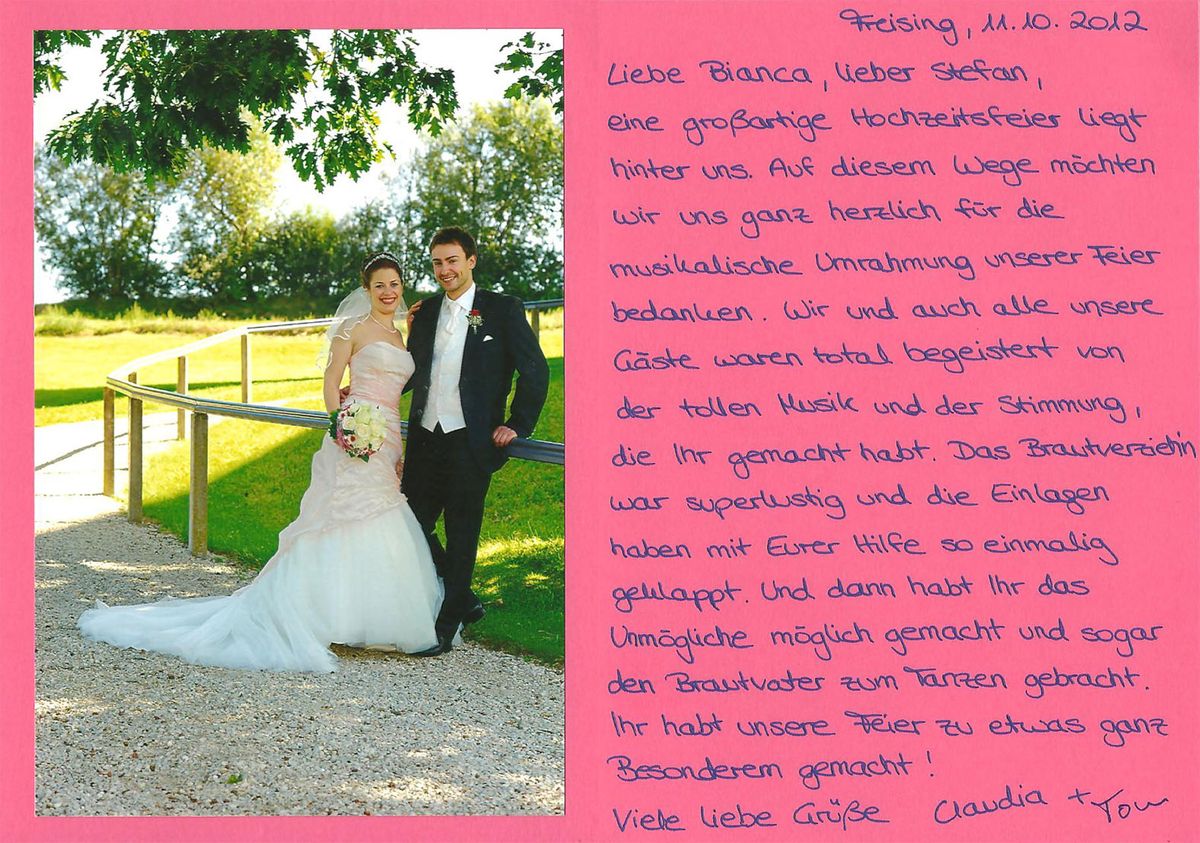 Freising, 11.10.2012
Liebe Bianca, lieber Stefan,
eine großartige Hochzeitsfeier liegt
hinter uns. Auf diesem Wege möchten
wir uns ganz herzlich für die
musikalische Umrahmung unserer Feier
bedanken. Wir und auch alle unsere
Gäste waren total begeistert von
der tollen Musik und der Stimmung,
die Ihr gemacht habt. Das Brautverzieh'n
war superlustig und die Einlagen
haben mit Eurer Hilfe so einmalig
geklappt. Und dann habt Ihr das
Unmögliche möglich gemacht und sogar
den Brautvater zum Tanzen gebracht.
Ihr habt unsere Feier zu etwas ganz
Besonderem gemacht!
Viele liebe Grüße Claudia + Tom